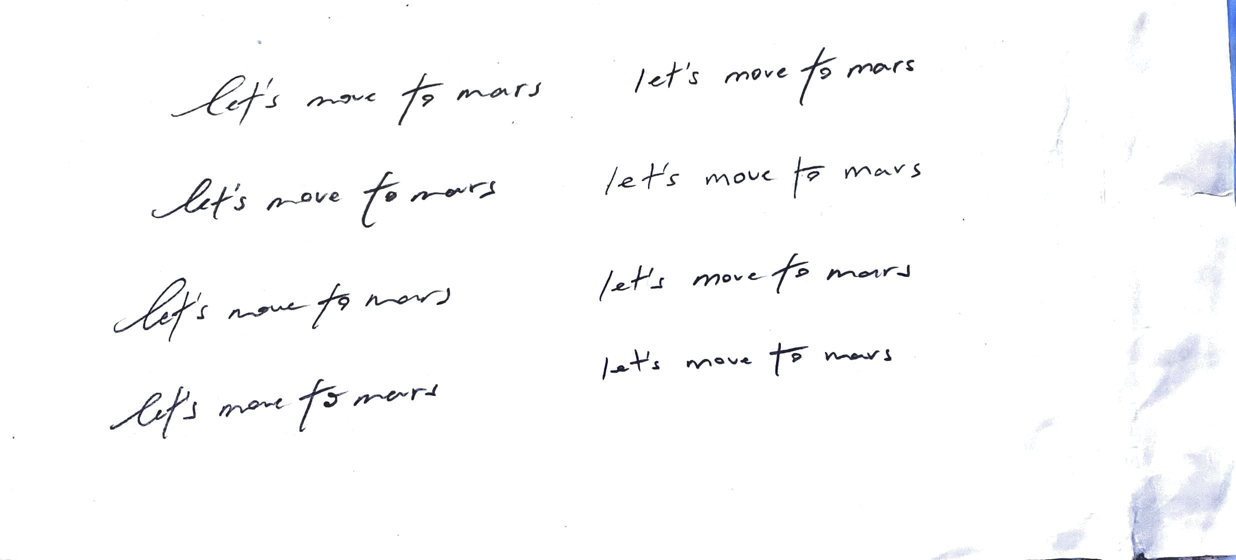 let's move to mars
let's move to mars
let's move to mars
let's move to mars
let's move to mars
let's move to mars
let's move to mars
let's move to mars